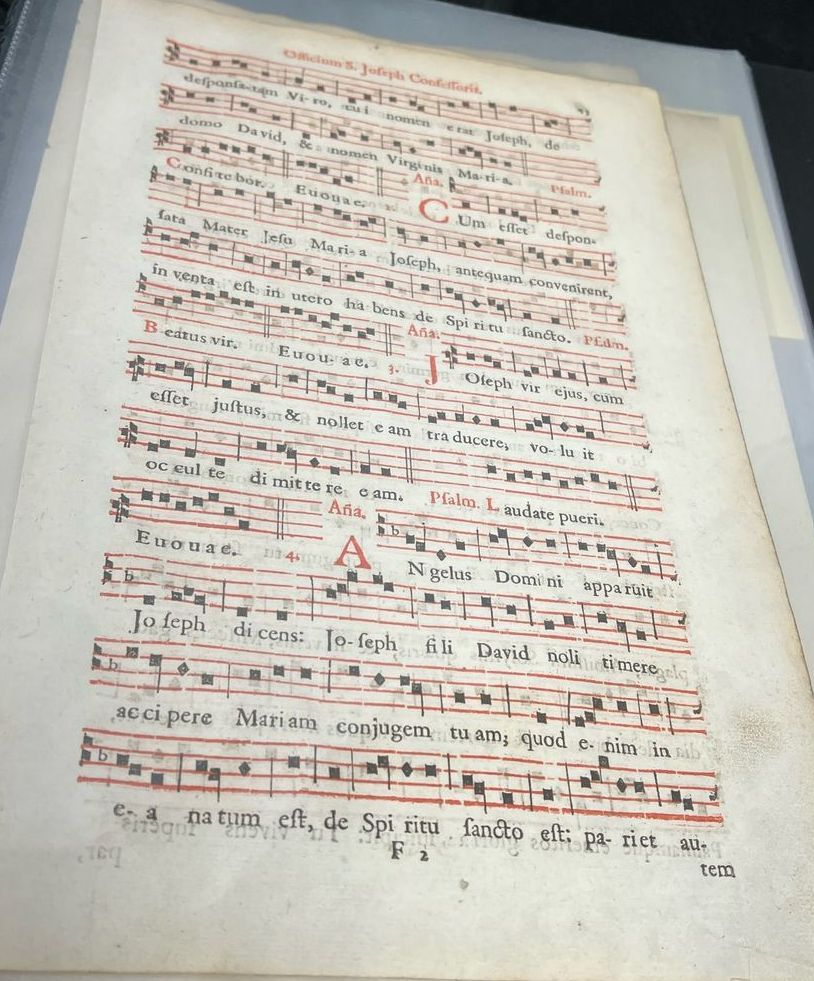 Officium S. Joſeph Confeſſoris.
deſponſa-tam Vi-ro, cui nomen erat Joſeph, de
domo David, & nomen Virginis Ma-ri-a. Pſalm.
Confitebor. Euouae. 2. Aña. CUm eſſet deſpon-
ſata Mater Jeſu Mari-a Joſeph, antequam convenirent,
in venta eſt in utero ha bens de Spi ri tu ſancto. Pſalm.
Beatus vir. Euou-ae. 3. Aña. JOſeph vir ejus, cum
eſſet juſtus, & nollet e am tra ducere, vo-lu it
oc cul te di mit te re e am. Pſalm. Laudate pueri.
Euouae. 4. Aña. ANgelus Domi ni appa ruit
Jo ſeph di cens: Jo-ſeph fi li David noli ti mere
ac ci pere Mariam conjugem tu am; quod e-nim in
e-a na tum eſt, de Spi ritu ſancto eſt: pa-ri et au-
F 2
tem